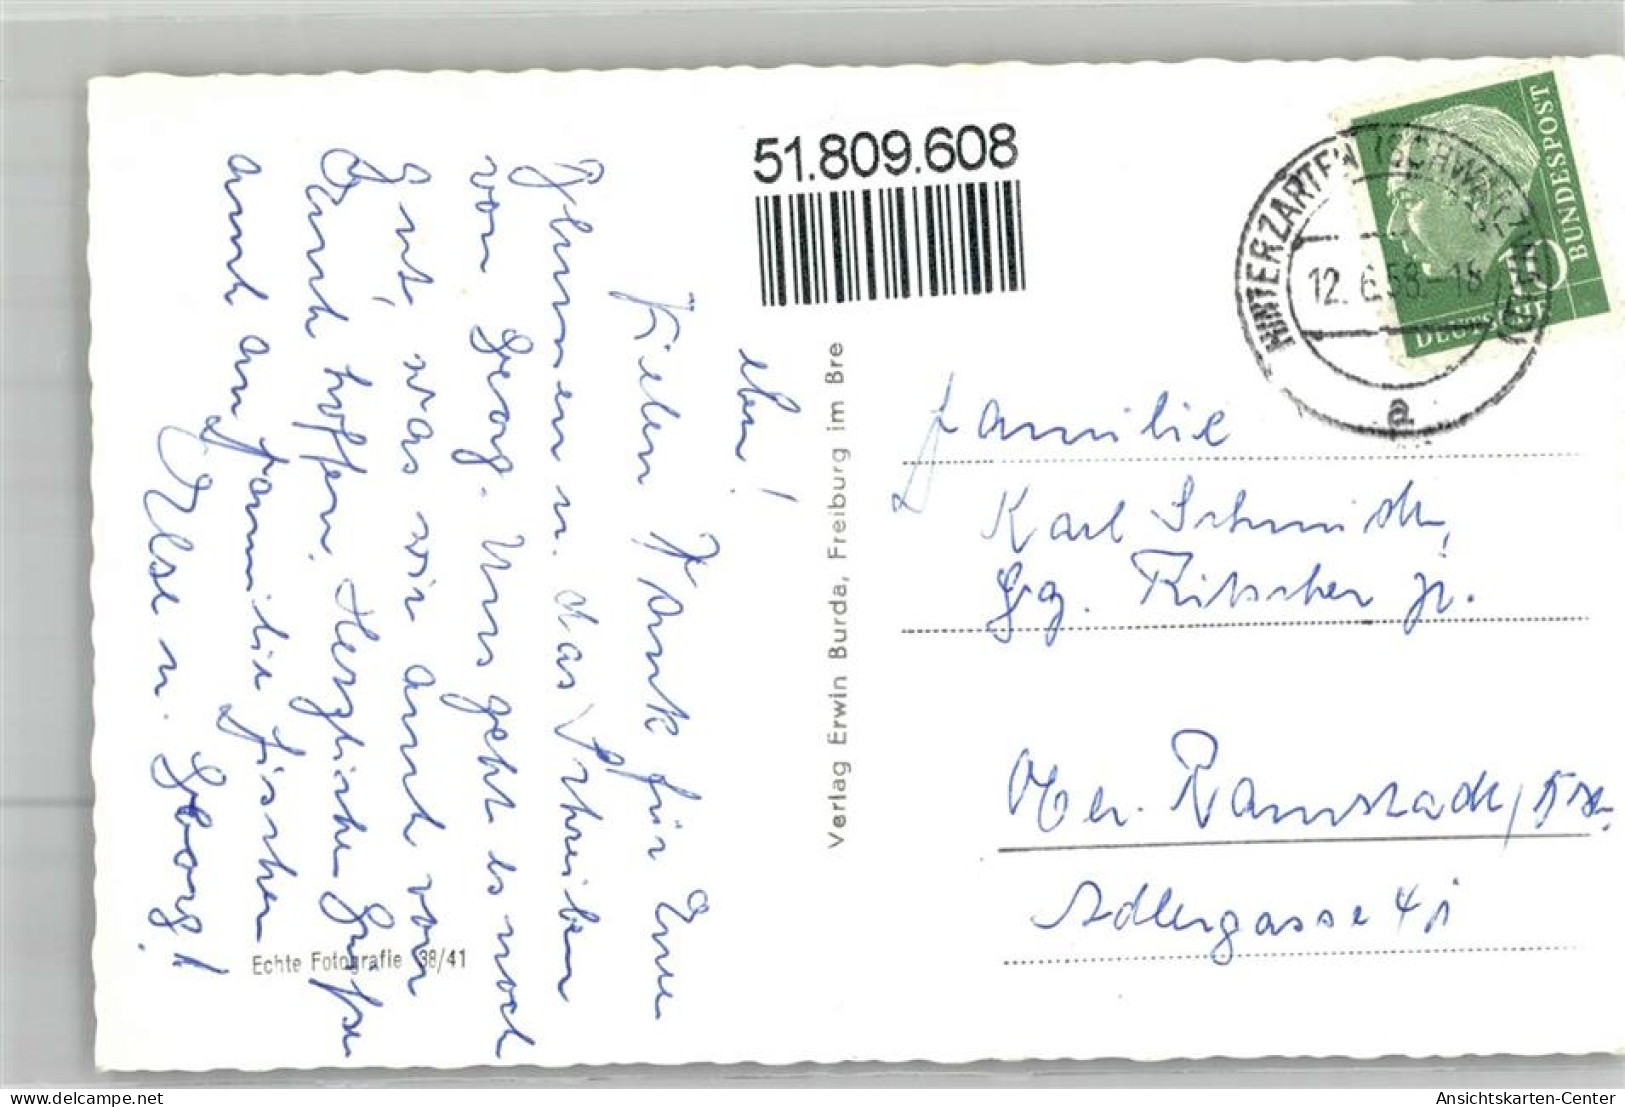 51.809.608
BUNDESPOST
10
DEUTSCHE
HINTERZARTEN (SCHWARZWALD)
12. 6. 58.-18
a
Familie
Karl Schmidt,
Gg. jr.
Ober-Ramstadt
Adlergasse
Verlag Erwin Burda, Freiburg im Bre
Echte Fotografie 38/41
Vielen Dank für Eure
Blumen u. das Schreiben
von Georg. Uns geht es noch
gut, was wir auch von
Euch hoffen. Herzliche Grüße
auch an Familie Fischer
Else u. Georg!
delcampe.net
Ansichtskarten-Center